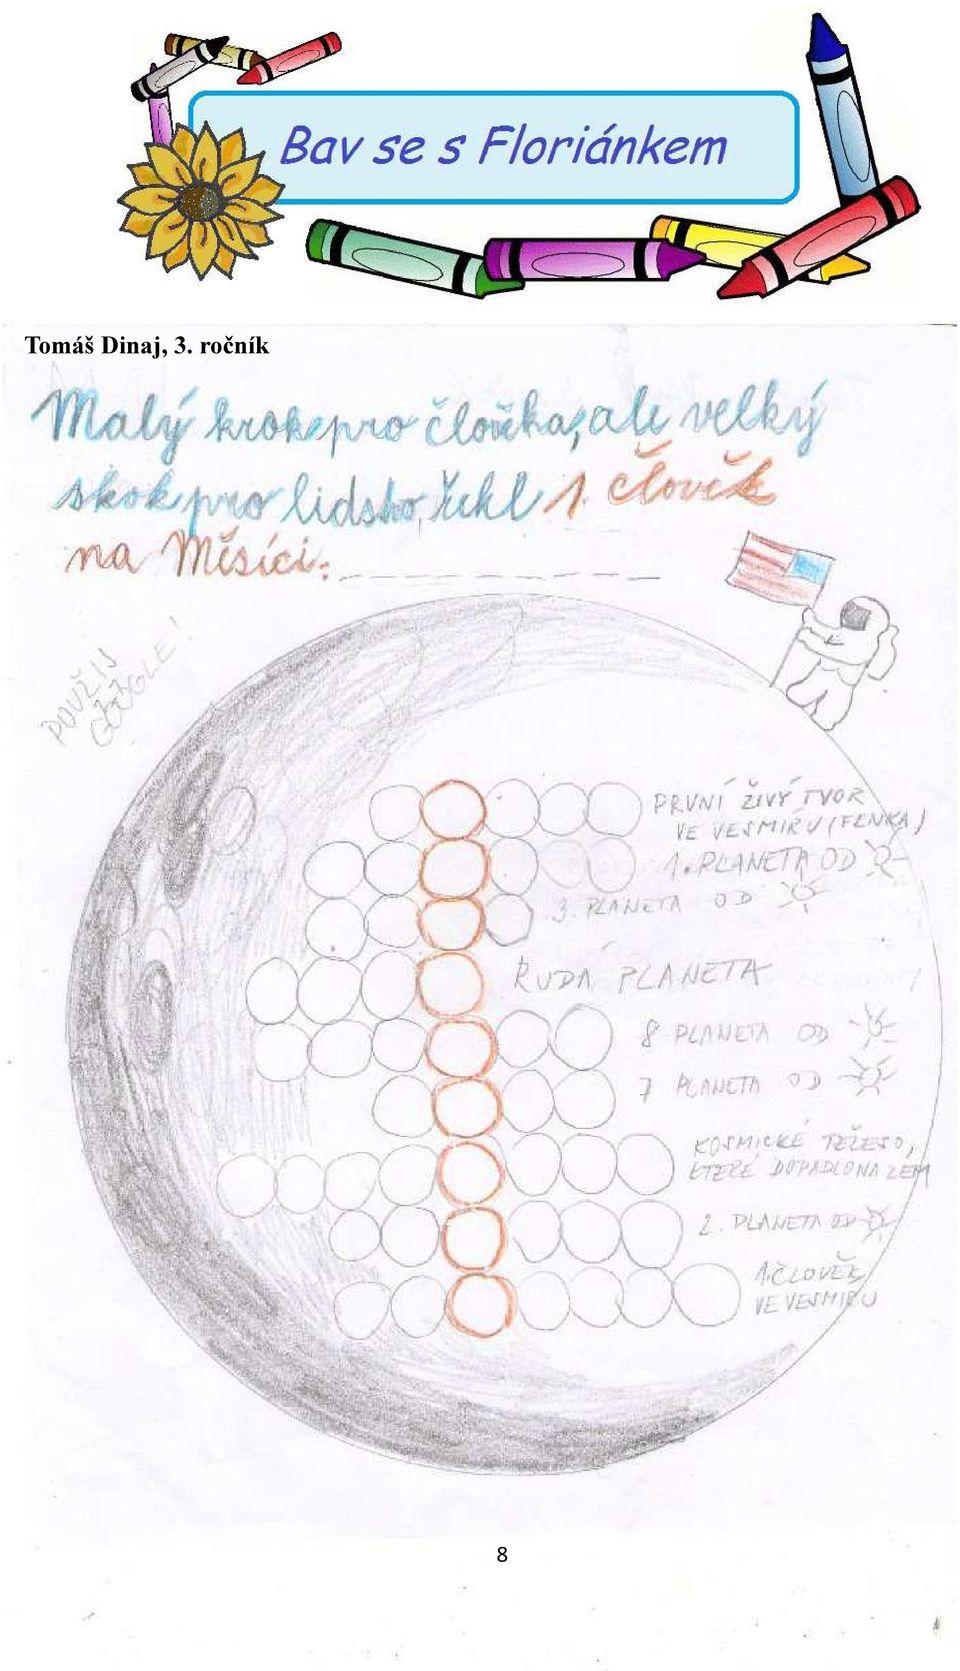 Bav se s Floriánkem
Tomáš Dinaj, 3. ročník
Malý krok pro člověka, ale velký
skok pro lidstvo, řekl 1. člověk
na Měsíci:
POUŽIJ
GOOGLE!
PRVNÍ ŽIVÝ TVOR
VE VESMIRU (FENKA)
1. PLANETA OD
3. PLANETA OD
RUDÁ PLANETA
8 PLANETA OD
7 PLANETA OD
KOSMICKÉ TĚLESO,
KTERÉ DOPADLO NA ZEM
2. PLANETA OD
1. ČLOVĚK
VE VESMIRU
8